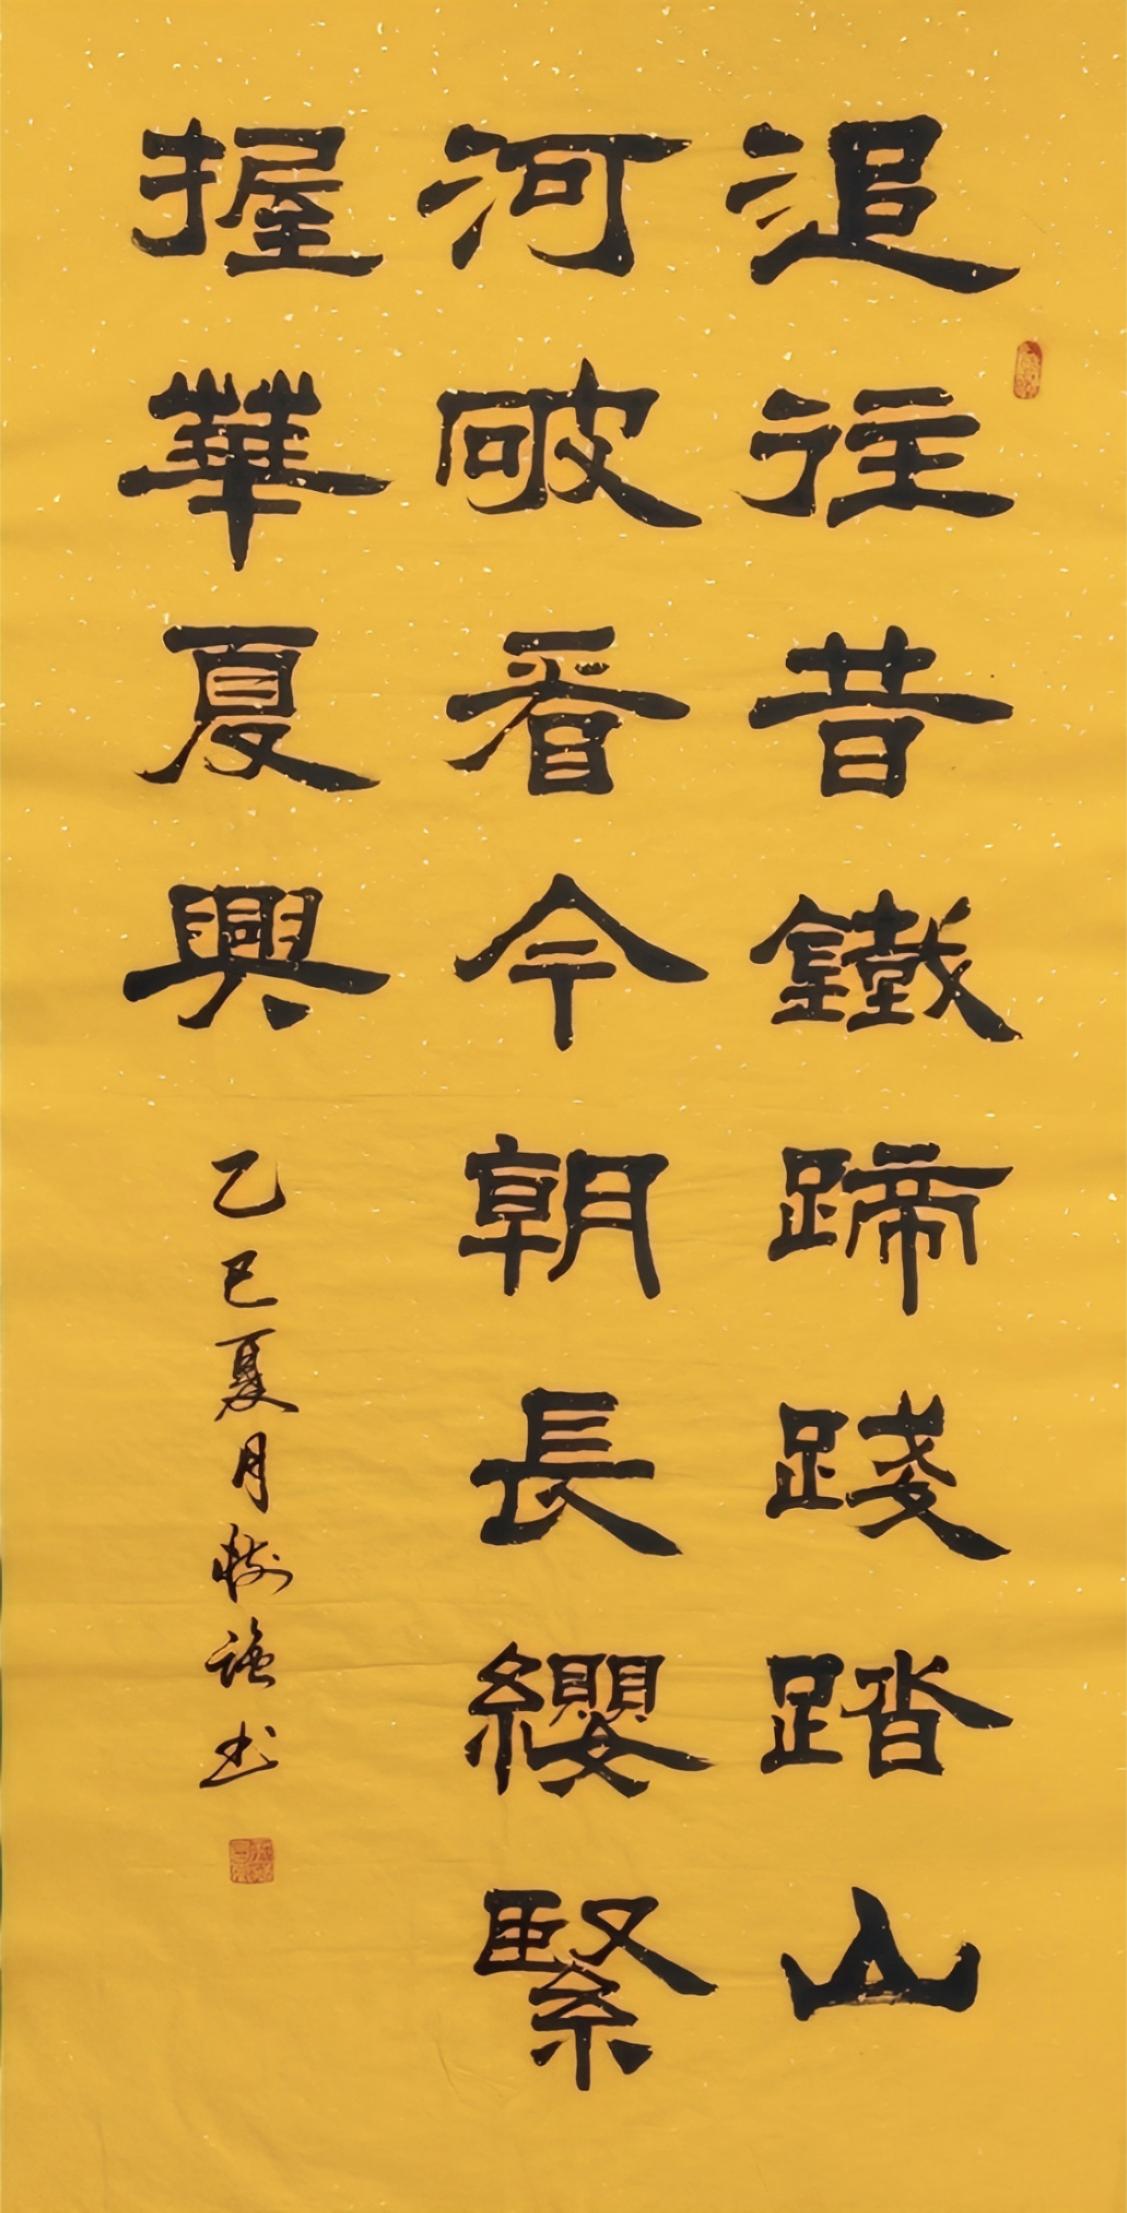 追往昔鐵蹄踐踏山
河破看今朝長纓緊
握華夏興
乙巳夏月樹強书